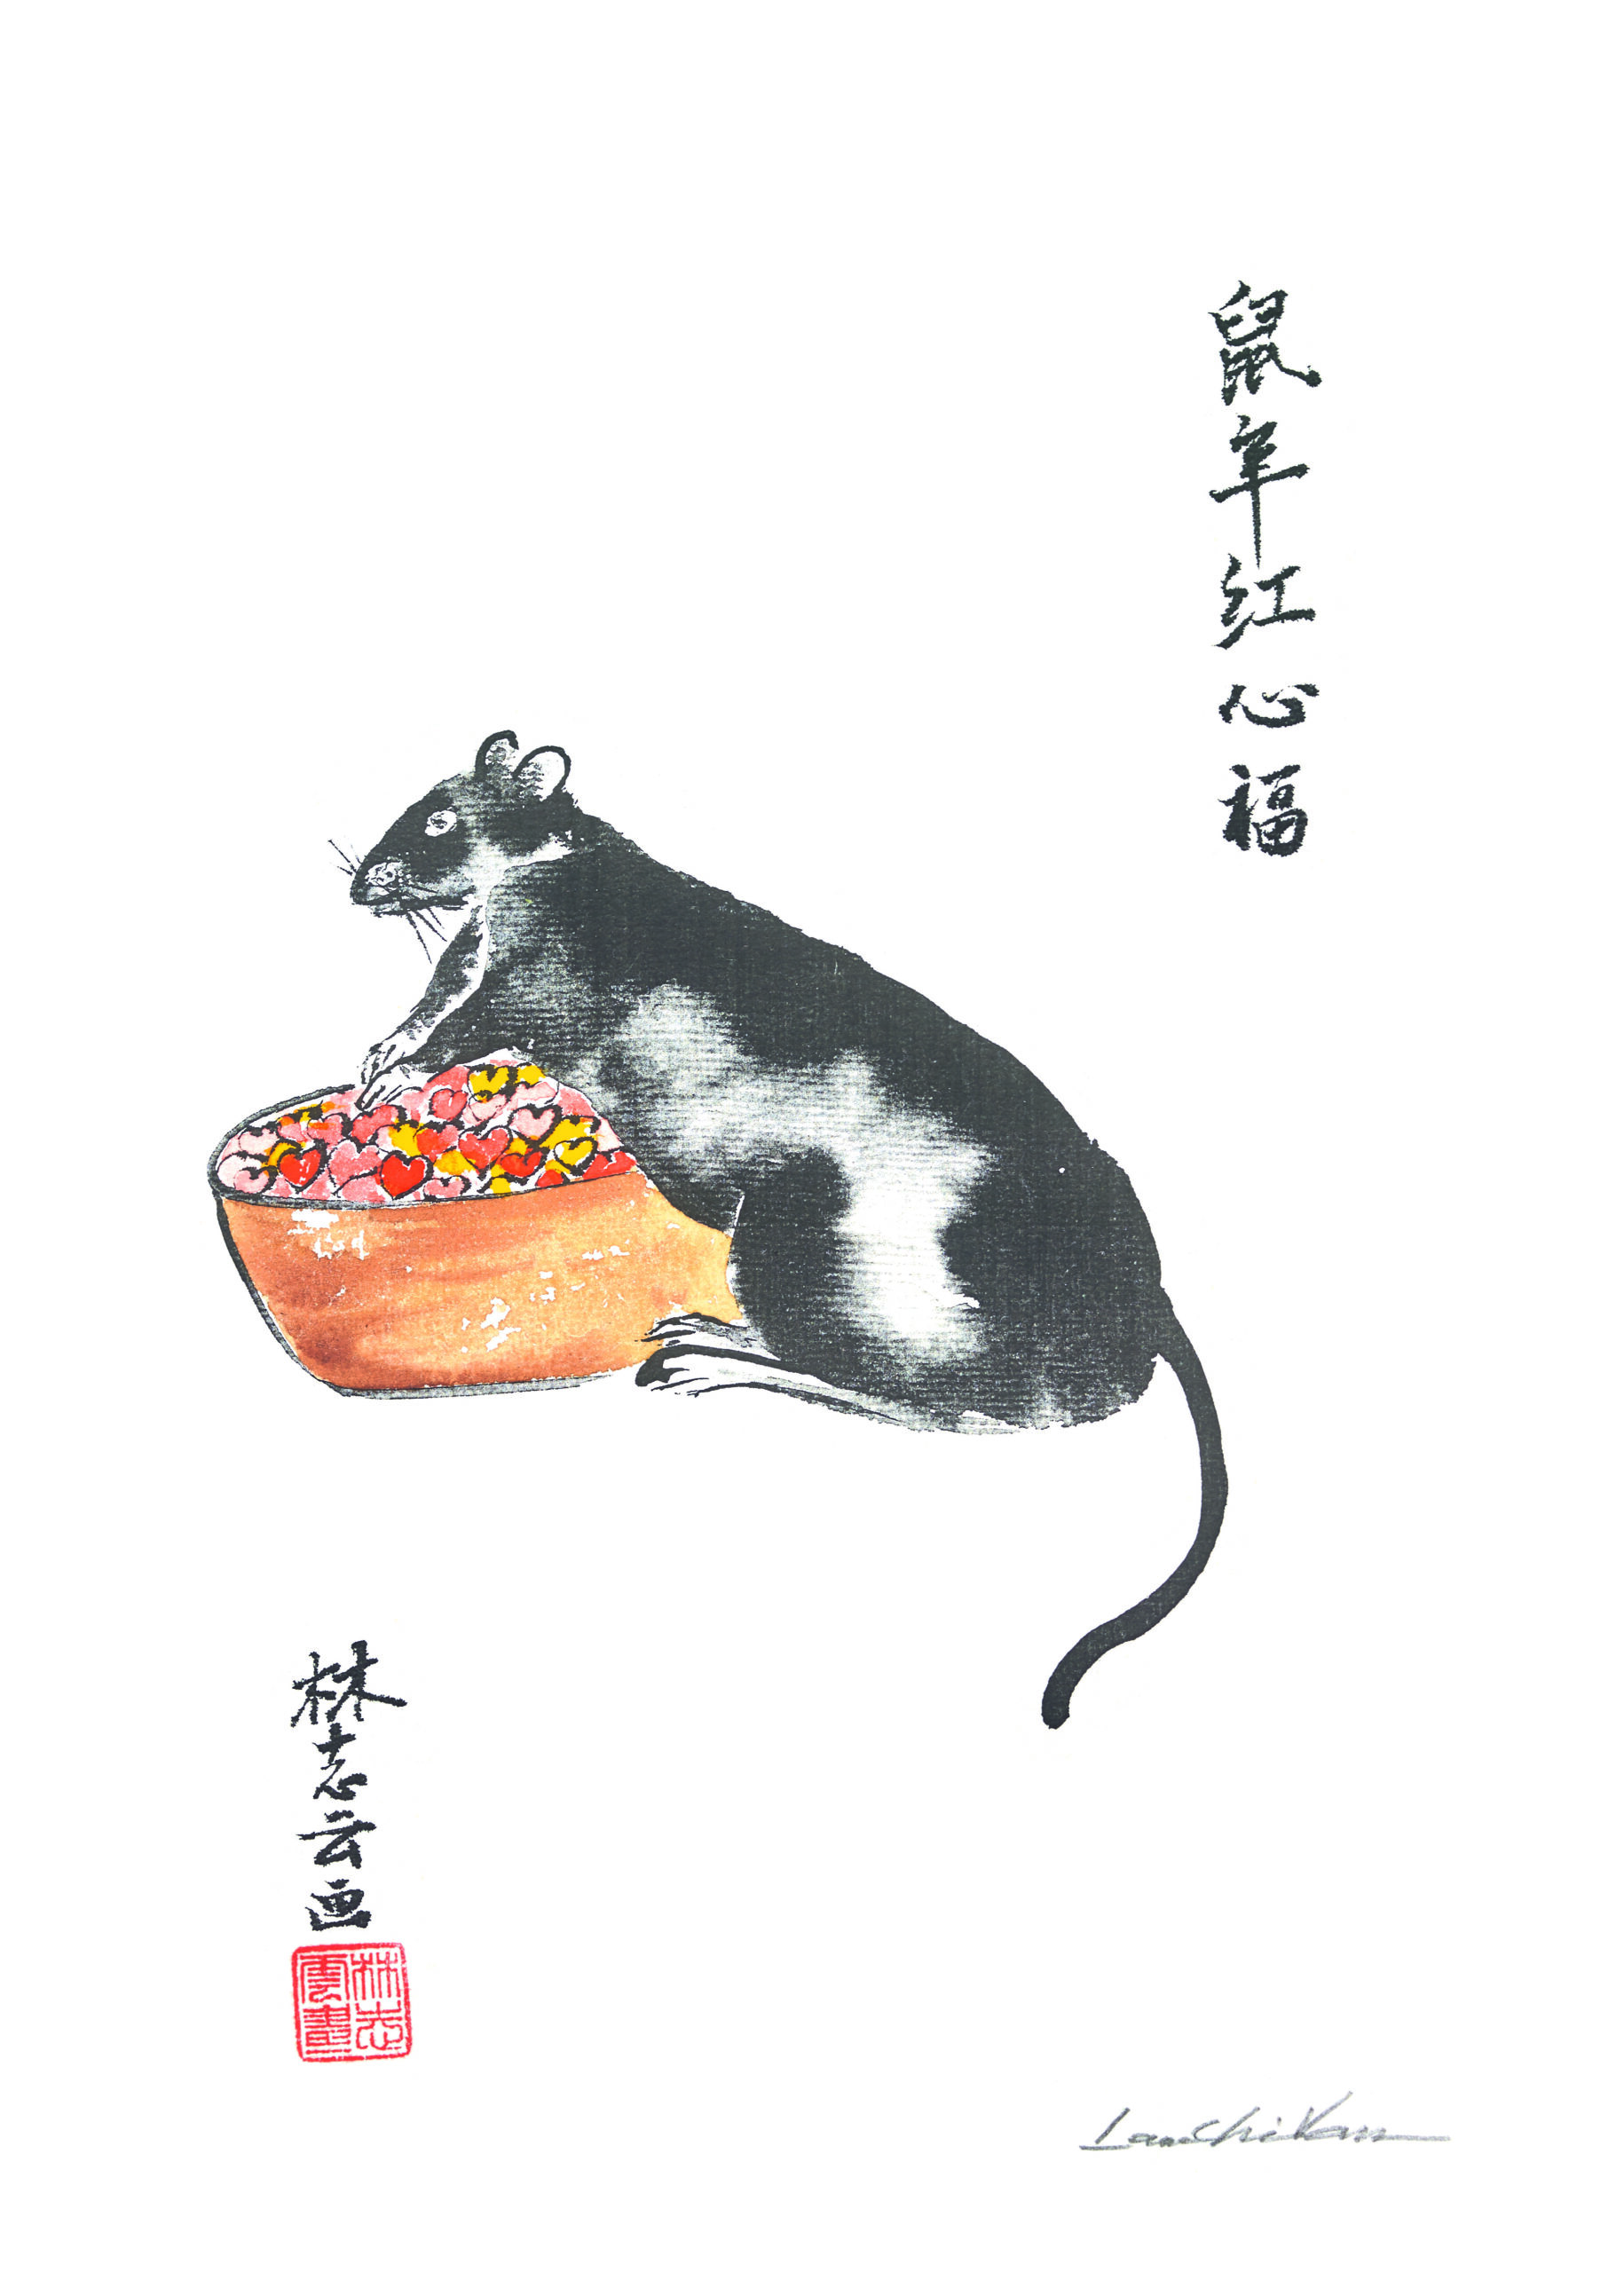 鼠年红心福
林志云画
林志
雲畫
LamChiVan